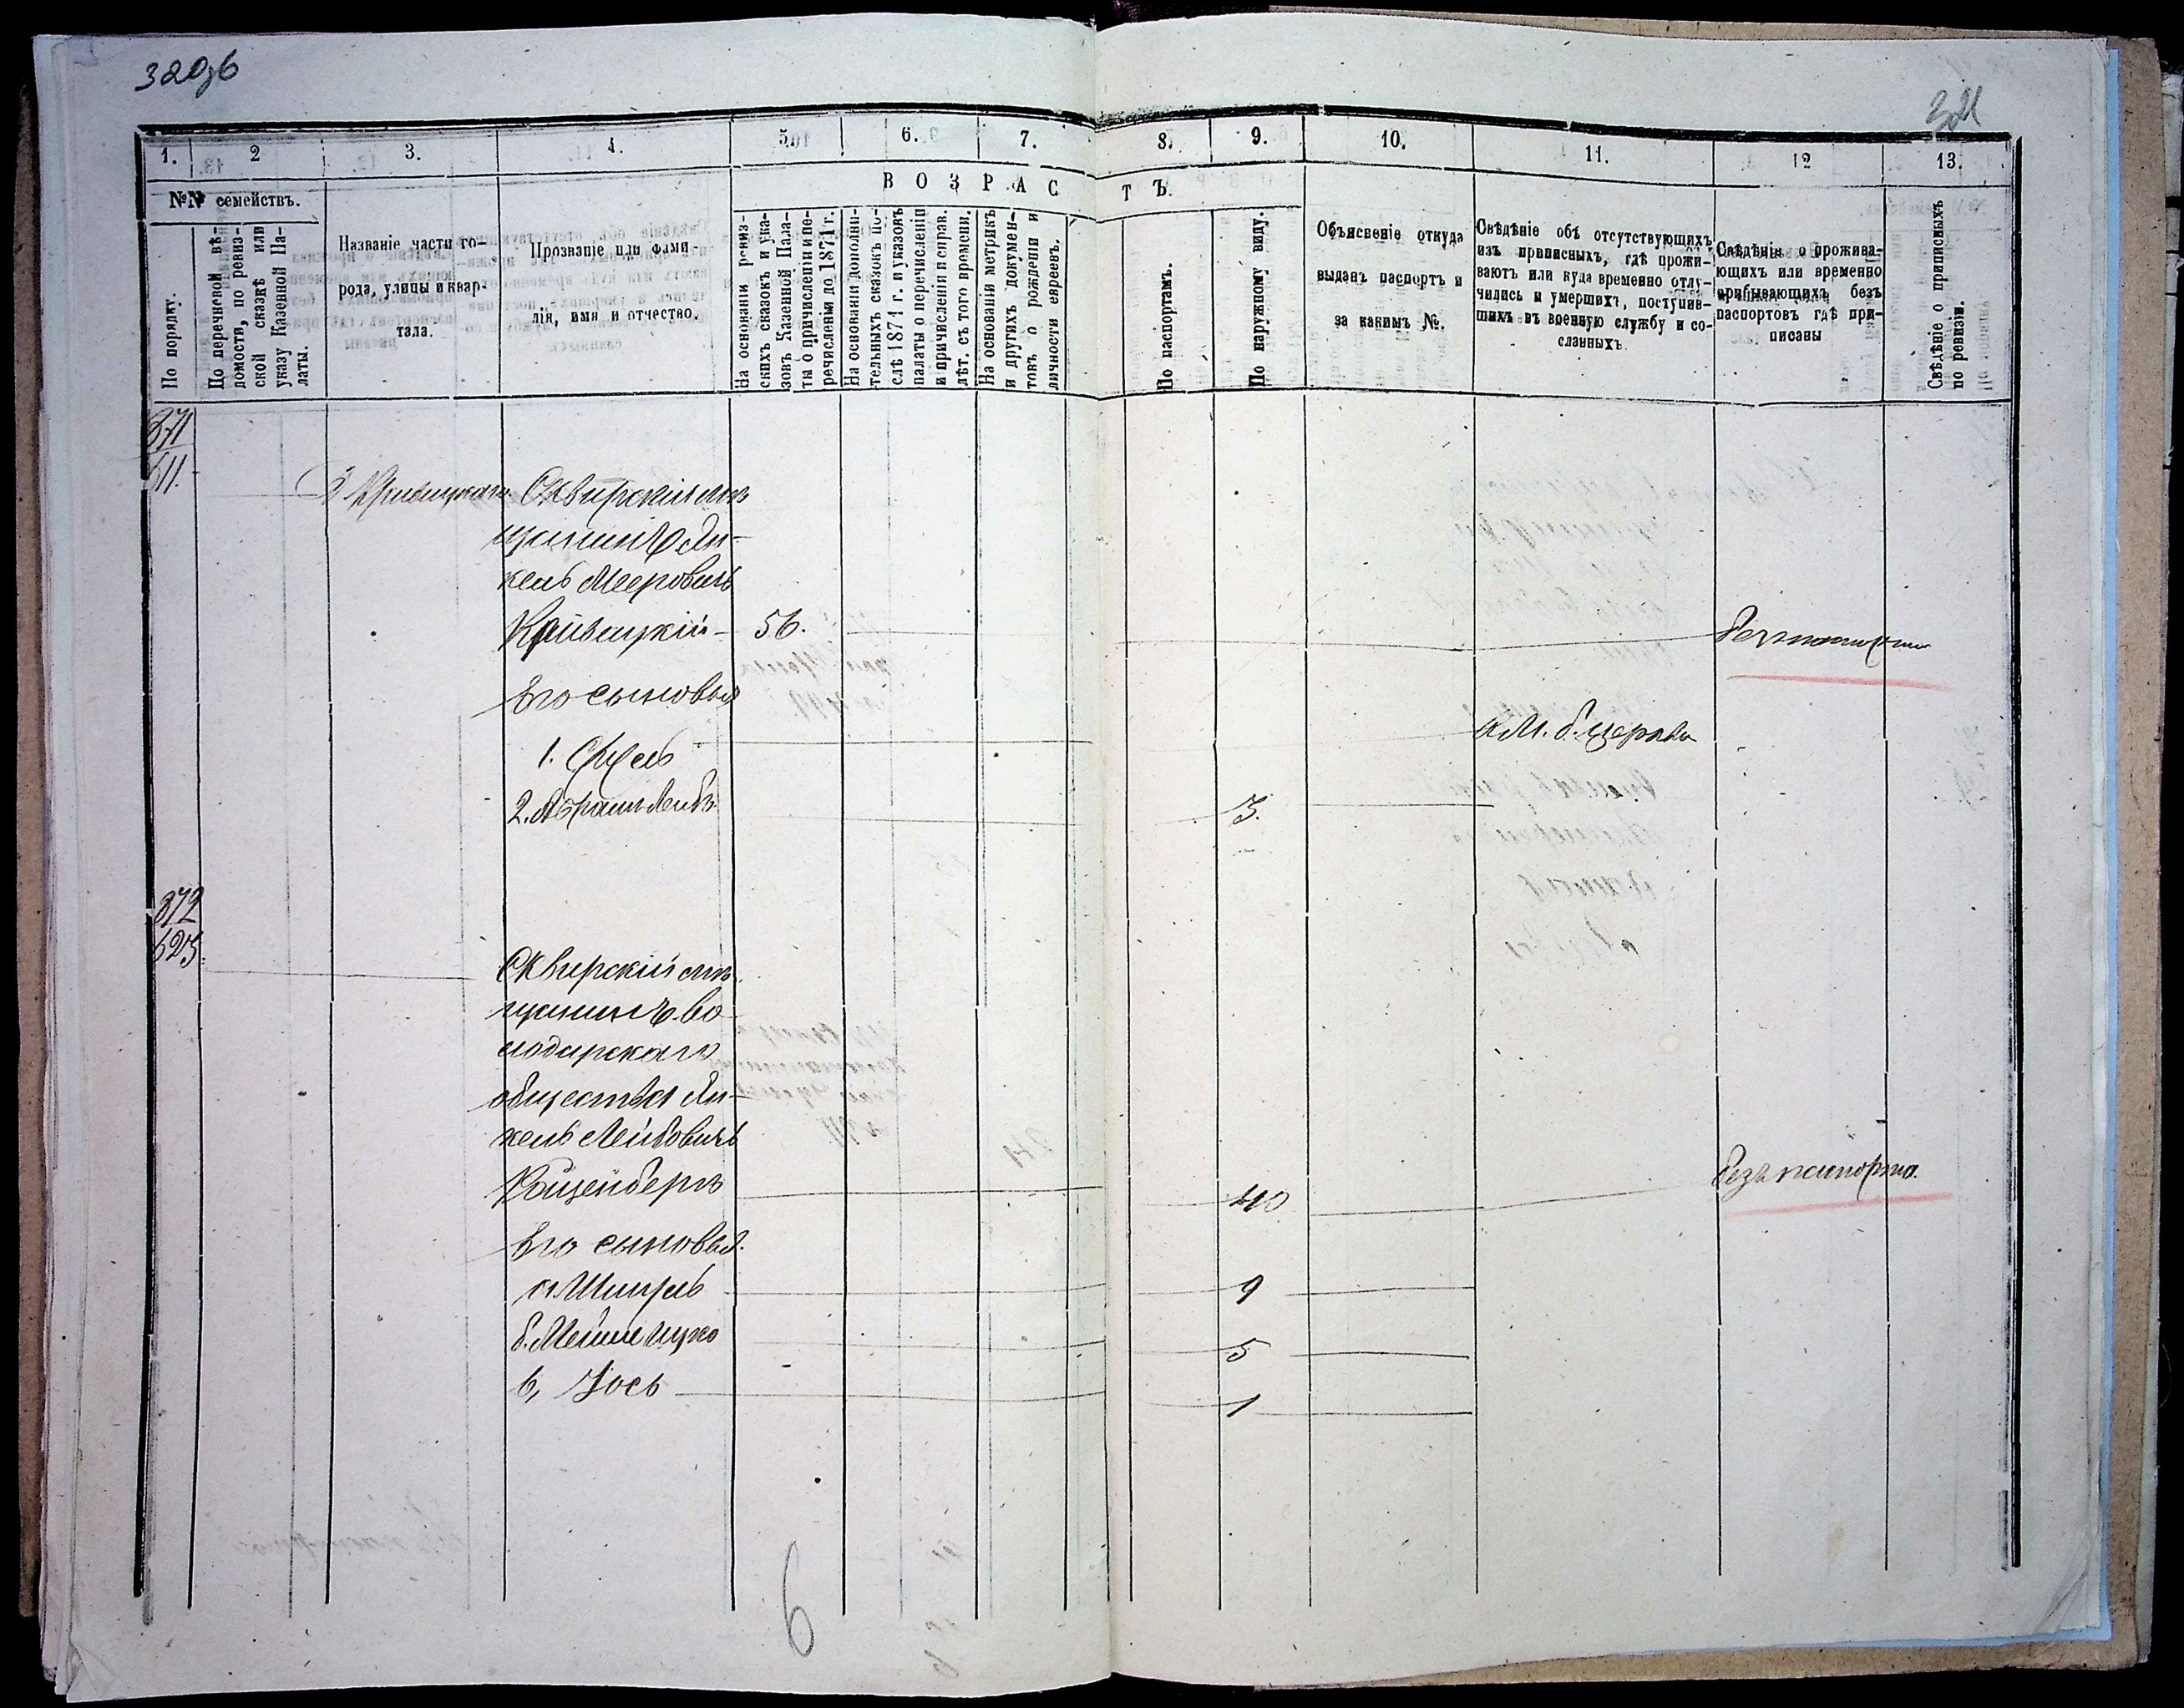 320об
321
1.
2
3.
4.
5.
6.
7.
8.
9.
10.
11.
12
13.
№№ семействъ.
ВОЗРАСТЪ.
По порядку.
По перечневой вѣ-
домости, по ревиз-
ской сказкѣ или
указу Казенной Па-
латы.
Названіе части го-
рода, улицы и квар-
тала.
Прозваніе или фами-
лія, имя и отчество.
На основаніи ревиз-
скихъ сказокъ и ука-
зовъ Казенной Пала-
ты о причисленіи и пе-
речисленіи до 1871 г.
На основаніи дополни-
тельныхъ сказокъ по-
слѣ 1871 г. и указовъ
палаты о перечисленіи
и причисленіи исправ.
лѣт. съ того времени.
На основаніи метрикъ
и другихъ докумен-
товъ о рожденіи и
личности евреевъ.
По паспортамъ.
По наружному виду.
Объясненіе откуда
выданъ паспортъ и
за какимъ №.
Свѣдѣніе объ отсутствующихъ
изъ приписныхъ, гдѣ прожи-
ваютъ или куда временно отлу-
чились и умершихъ, поступив-
шихъ въ военную службу и со-
сланныхъ.
Свѣдѣнія о прожива-
ющихъ или временно
прибывающихъ безъ
паспортовъ гдѣ при-
писаны
Свѣдѣніе о приписныхъ
по ревизіи.
371
611.
Сквирскій мѣ
щанинъ Ян-
кель Мееровичъ
56.
Его сыновья
1. Сруль
м. б. церковь
2. Абрамъ Лейбъ
3.
372
625.
Сквирскій мѣ
щанинъ во-
лодарского
общества Ян-
кель Лейбовичъ
Койценбергъ
40
безъ паспорта.
Его сыновья.
а. Шмуль
9
б. Мейше Ицко
5
в, Іось
1
6